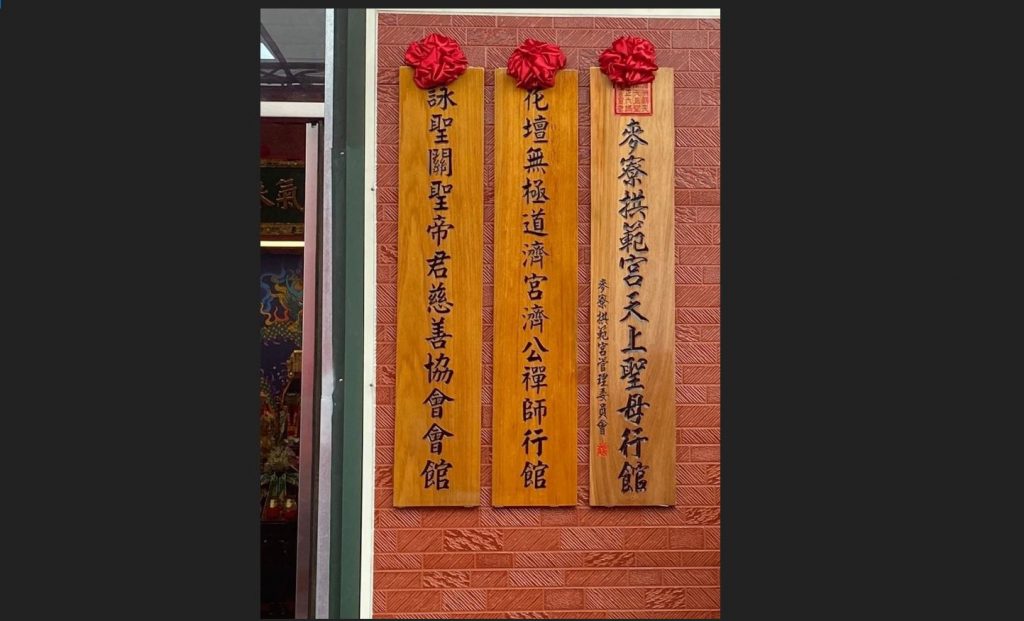 麥寮拱範宮天上聖母行館
麥寮拱範宮管理委員會
花壇無極道濟宮濟公禪師行館
詠聖關聖帝君慈善協會會館
氣